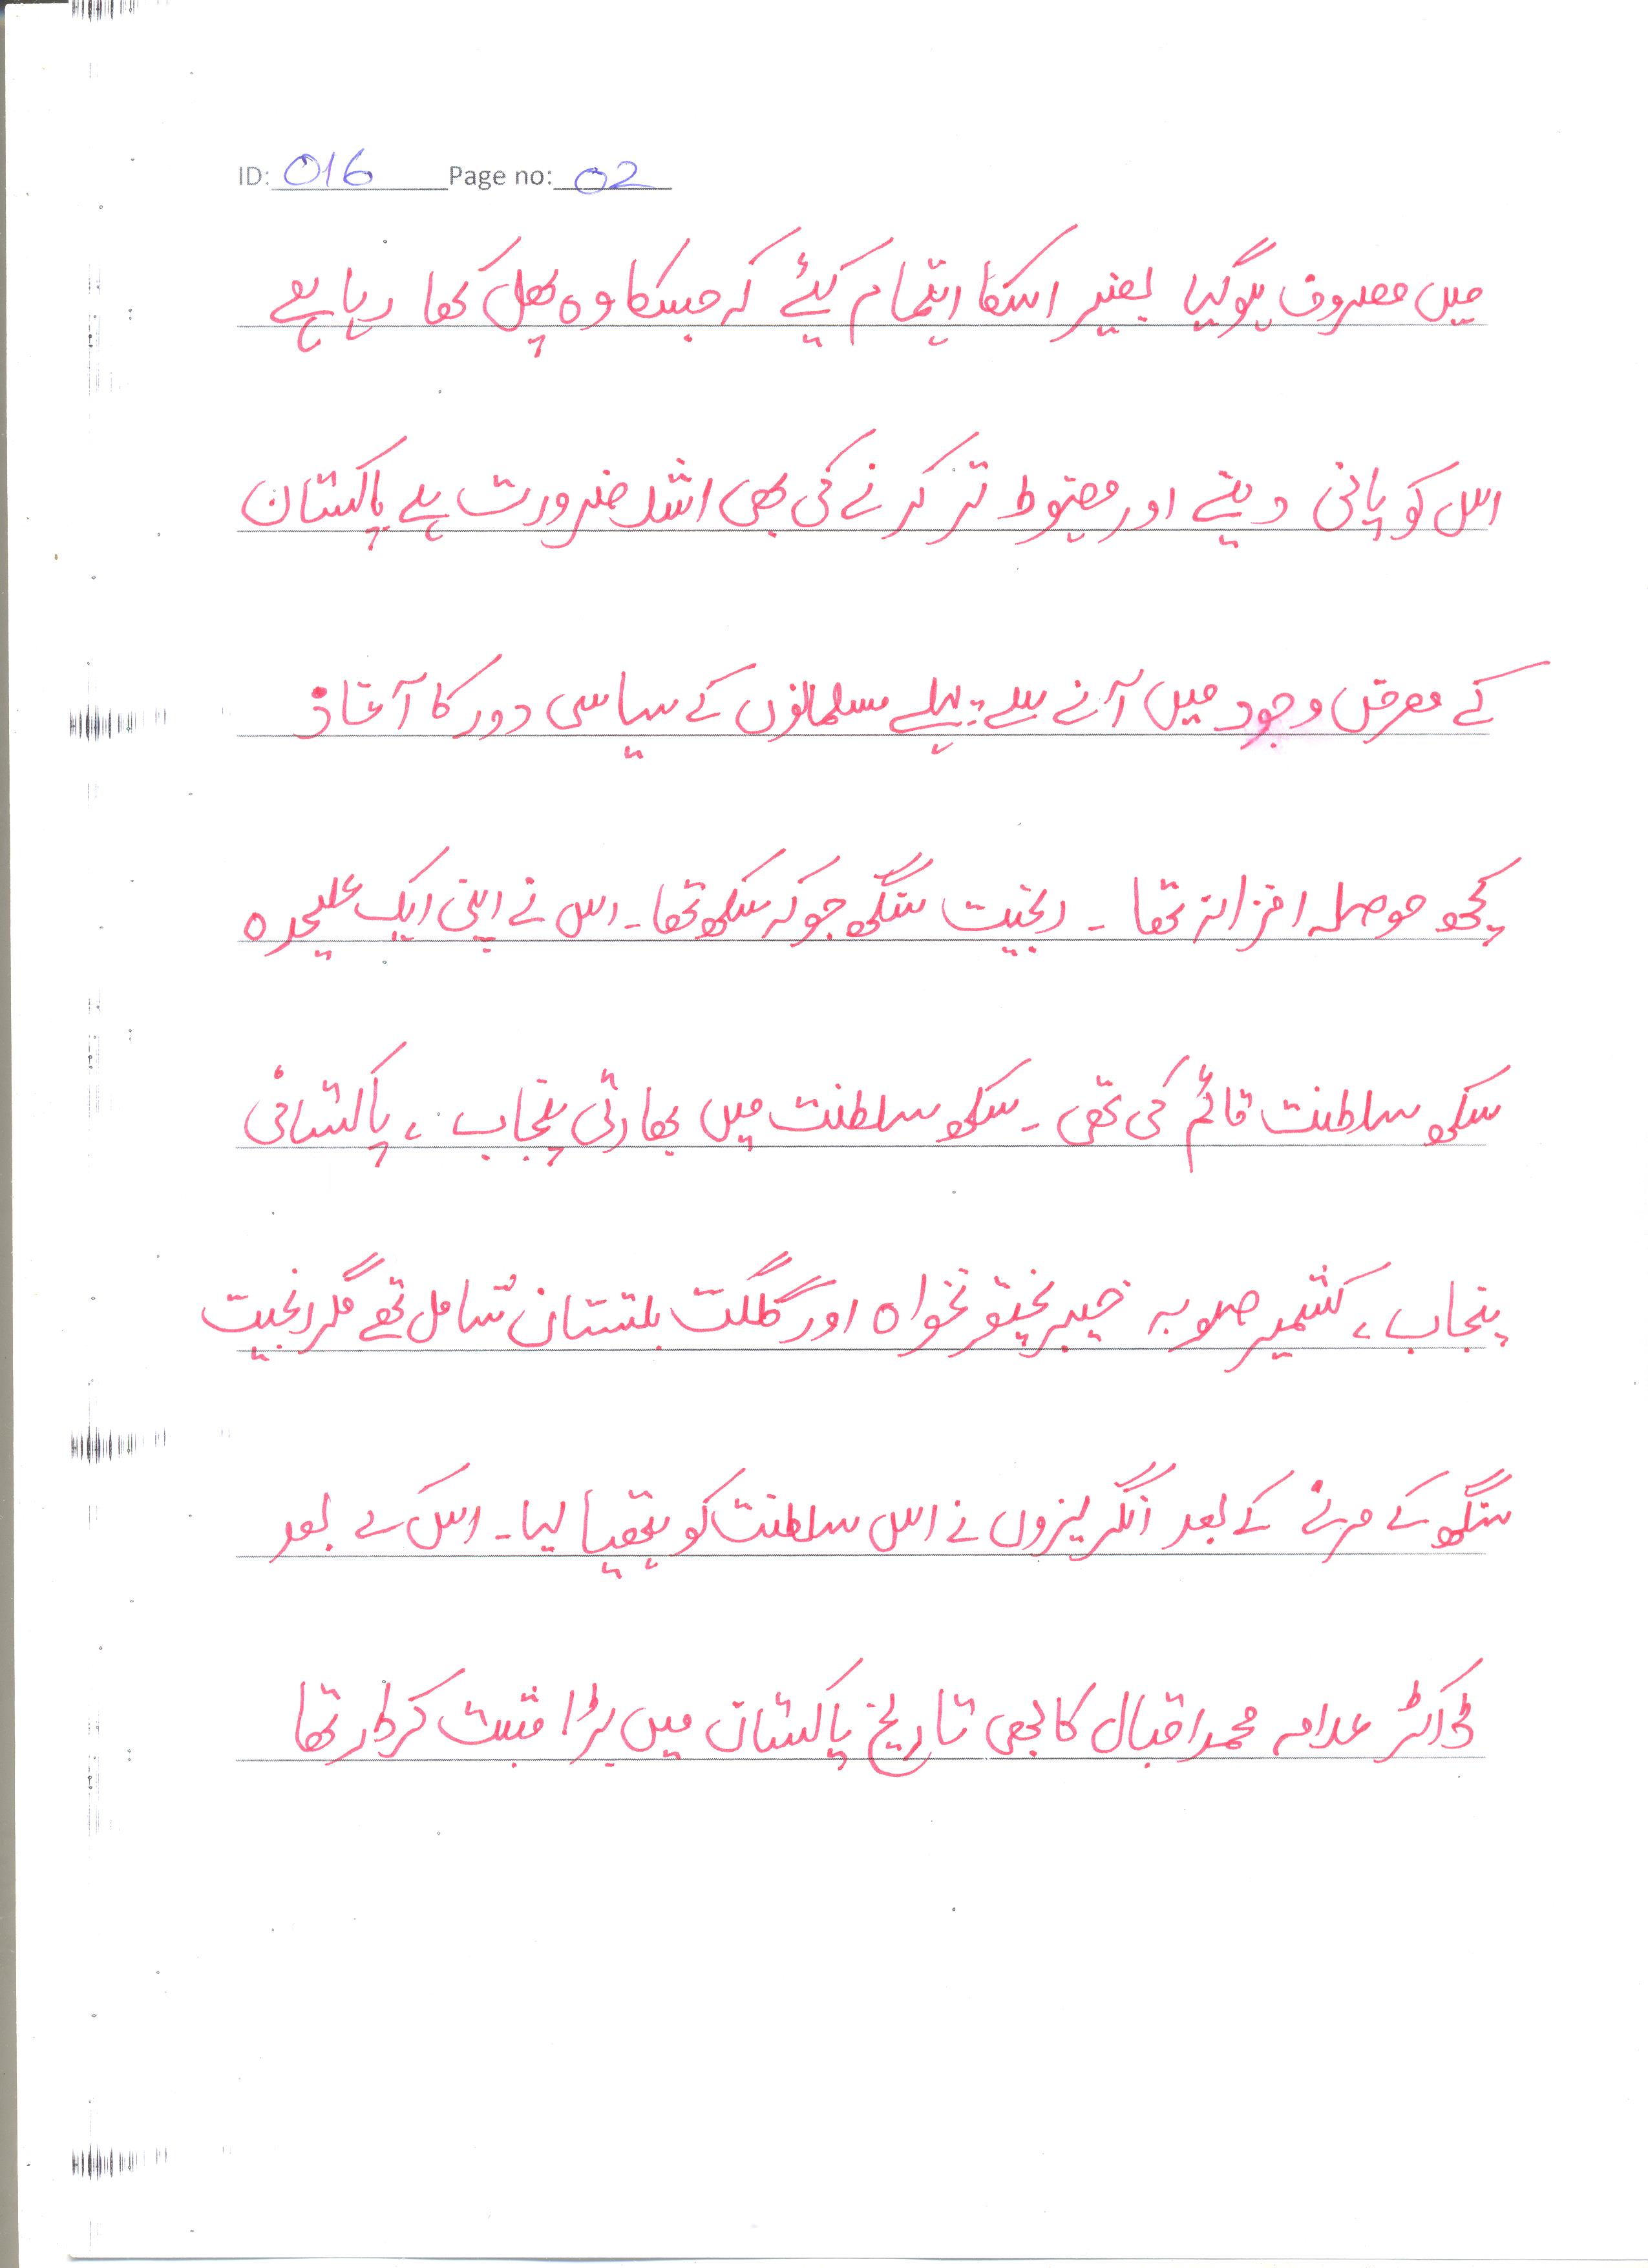 ID: 016 Page no: 02
میں مصروف ہوگیا بغیر اسکا اہتمام کیئے کہ جسکا وہ پھل کھا رہا ہے
اس کو پانی دینے اور مضبوط تر کرنے کی بھی اشد ضرورت ہے پاکستان
کے معرض وجود میں آنے سے پہلے مسلمانوں کے سیاسی دور کا آغاز
کچھ حوصلہ افزا نہ تھا ۔ رنجیت سنگھ جو کہ سکھ تھا۔ اس نے اپنی ایک علیحدہ
سکھ سلطنت قائم کی تھی ۔ سکھ سلطنت میں بھارتی پنجاب ، پاکستانی
پنجاب ، کشمیر صوبہ خیبر پختو نخواہ اور گلگت بلتستان شامل تھے مگر رنجیت
سنگھ کے مرنے کے بعد انگریزوں نے اس سلطنت کو ہتھیا لیا ۔ اس کے بعد
ڈاکٹر علامہ محمد اقبال کا بھی تاریخ پاکستان میں بڑا مثبت کردار تھا